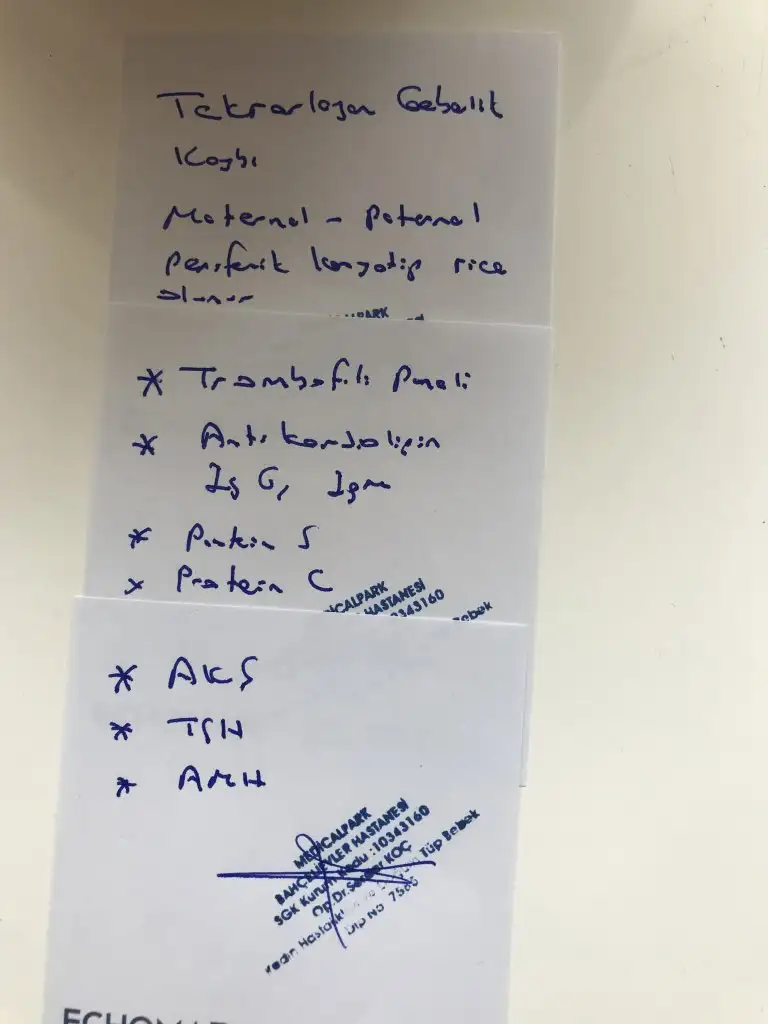 Tekrarlayan Gebelik
Kaybı
Maternal - Paternal
Periferik karyotip rica
olunur
* Trombofili Paneli
* Anti kardiolipin
Ig G, IgM
* Protein S
* Protein C
MEDICALPARK
HASTANESİ
0343160
Bebek
* AKŞ
* TSH
* AMH
MEDICALPARK
BAHÇELİEVLER HASTANESİ
SGK Kurum Kodu :10343160
Op.Dr. KOÇ
Kadın Hastalık Tüp Bebek
Dip No